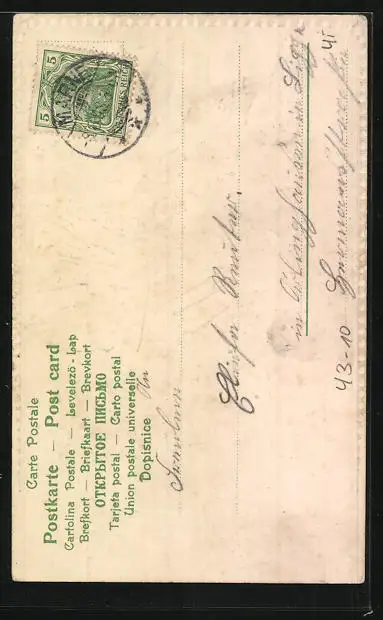 Carte Postale
Postkarte — Post card
Cartolina Postale — Levelező-Lap
Brefkort — Briefkaart — Brevkort
ОТКРЫТОЕ ПИСЬМО
Tarjeta postal — Carto postal
Union postale universelle
Dopisnice
An
Fräulein
Reuter.
in
43-10
41
5 5
DEUTSCHES REICH
MARNE